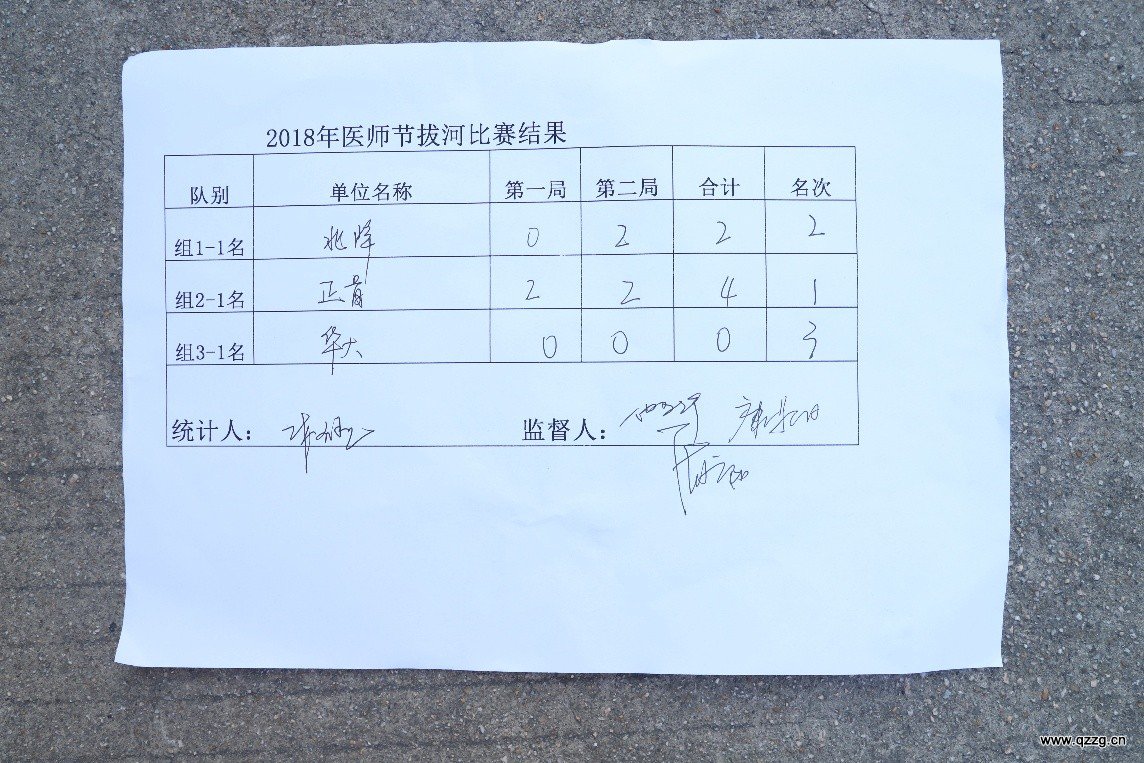 2018年医师节拔河比赛结果
队别 单位名称 第一局 第二局 合计 名次
组1-1名 0 2 2 2
组2-1名 正骨 2 2 4 1
组3-1名 华大 0 0 0 3
统计人: 监督人:
www.qzzg.cn